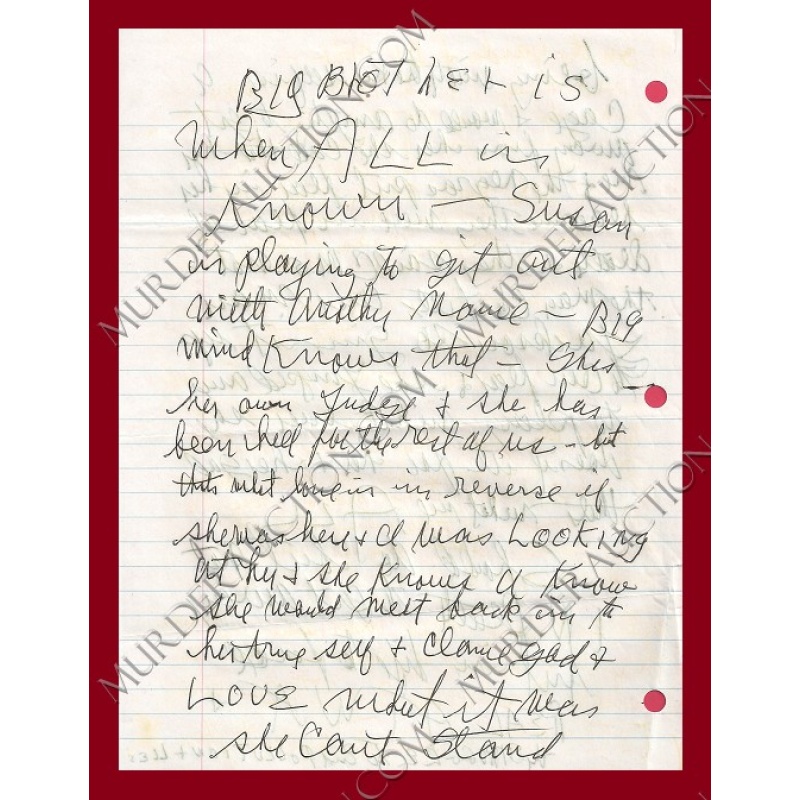 BIG BROTHER is
when ALL is
Known — Susan
is playing to git out
with Name — BIG
mind Knows that — Shes
her own Judge & she has
been hell for the rest of us — but
thats what love is in reverse if
she was here & I was LOOKING
at her & she Knows I Know
she would melt back in to
her true self & god &
LOVE what it was
She Can't Stand
MURDERAUCTION.COM